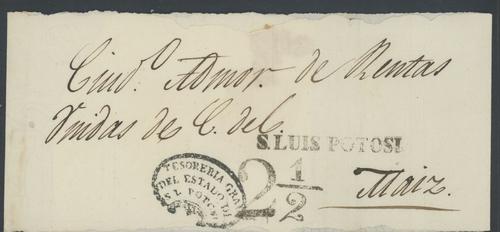 Ciud.º Admor. de Rentas
Unidas de C. del C.
S. LUIS POTOSI
TESORERIA GRAL
DEL ESTADO DE
S. L. POTOSI
2 1/2
Maiz.